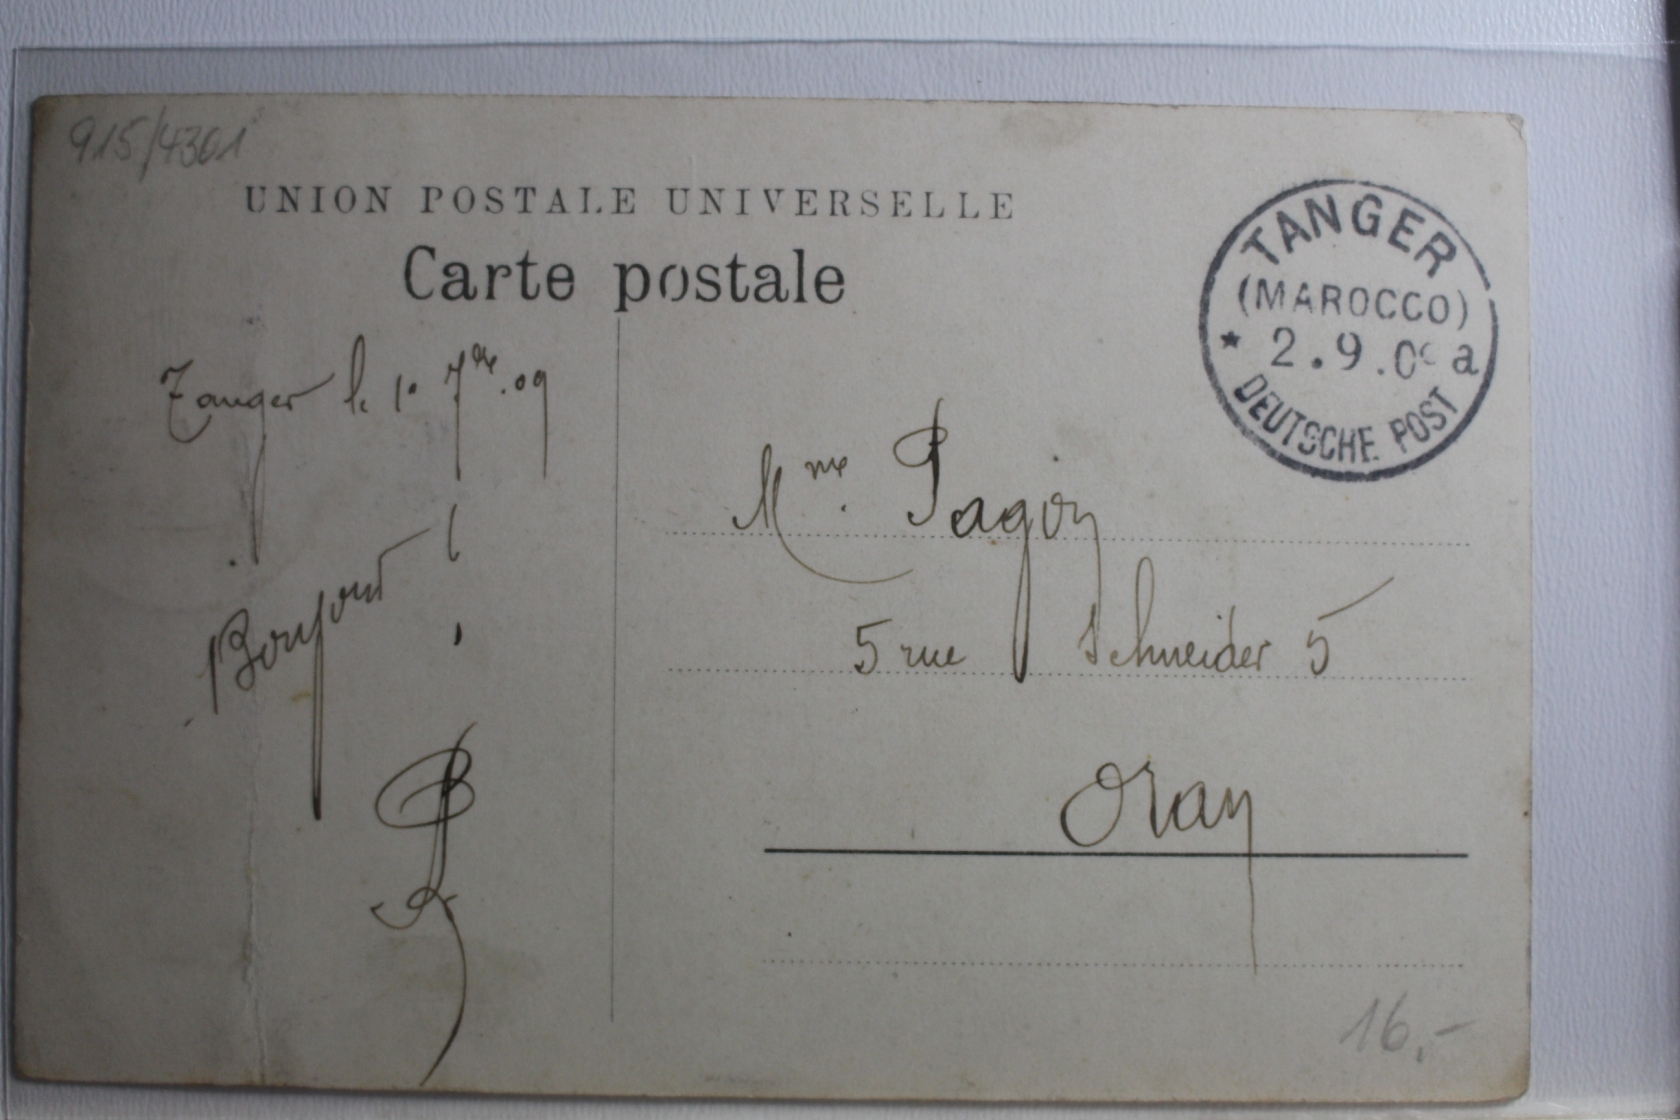 915/4301
UNION POSTALE UNIVERSELLE
Carte postale
TANGER
(MAROCCO)
* 2.9.09 a
DEUTSCHE POST
Tanger le 1º 7bre .09
Bonjour !
Mme. Pagon
5 rue Schneider 5
Oran
16,-